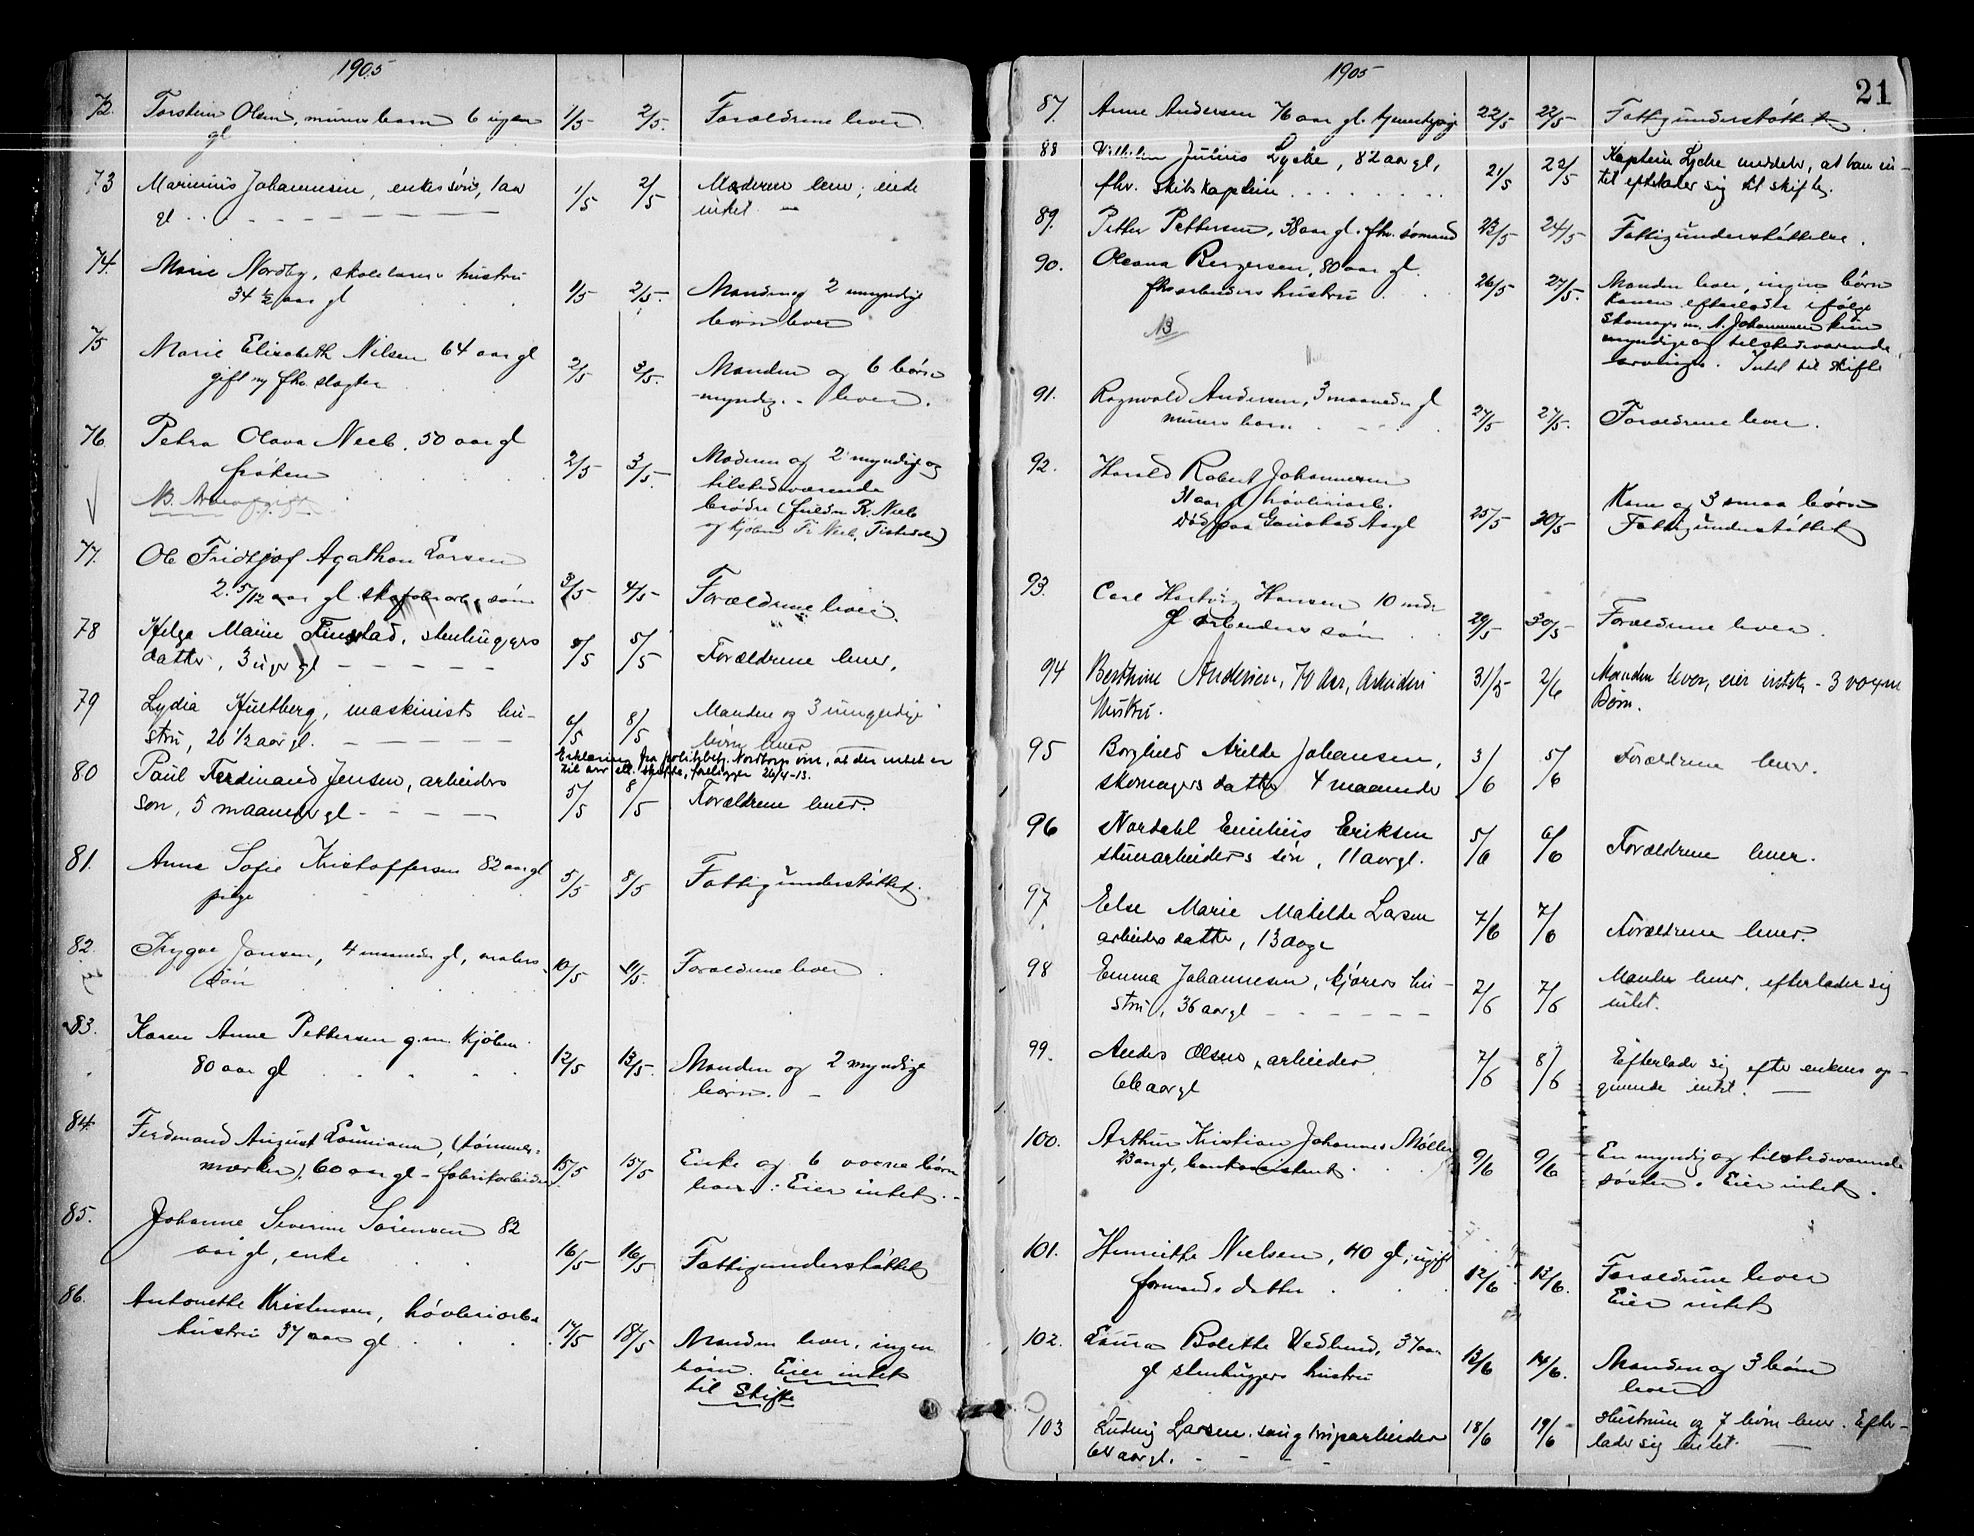 1905
72. Torstein Olsen, murers barn 6 uger 1/5 2/5. Forældrene lever.
gl
73 Marinius Johannesen, enkes søn, 1 aar 1/5 2/5 Moderen lever; eiede
gl intet. —
74. Marie Nordby, skolelærer hustru
34 ½ aar gl 1/5 2/5. Manden og 2 umyndige
børn lever
75 Marie Elisabeth Nilsen 64 aar gl
gift m fhv. slagter 2/5 3/5. Manden og 6 børn
- myndig. - lever.
76. Petra Olava Neeb. 50 aar gl
frøken 2/5 3/5 Moderen og 2 myndige og
tilstedeværende
NB. Arveafgift brødre (
77. Ole Fridtjof Agathon Larsen
2. 5/12 aar gl skofabr.arb. søn 3/5. 4/5. Forældrene lever.
78 Helga Marie Finstad, stenhuggers
datter, 3 uger gl — 5/5 Forældrene lever.
79 Lydia Hultberg, maskinists hu-
stru, 26 1/2 aar gl. 6/5 8/5 Manden og 3 umyndige
børn lever
Erklæring fra politibetj. Nordtorp om, at der intet er
til arv ell. skifte, foreligger 26/4-13.
80 Paul Ferdinand Jensen, arbeiders
søn, 5 maaneder gl 5/5 8/5 Forældrene lever.
81. Anne Sofie Kristoffersen 82 aar gl
pige 5/5 8/5 Fattigunderstøttet.
82. Trygve Jansen, 4 maaneder gl, malers
søn 10/5 11/5. Forældrene lever.
83. Karen Anne Pettersen g.m. kjøbm.
80 aar gl 12/5 13/5. Manden og 2 myndige
børn. -
84. Ferdinand August Laumann, (tømmer-
mærker), 60 aar gl - fabrikarbeider 15/5 15/5 Enke og 6 voxne børn
lever. Eier intet. -
85. Johanne Severine Sørensen 82
aar gl, enke 16/5 16/5 Fattigunderstøttet
86. Antonette Kristensen, høvleriarb.
hustru 37 aar gl 17/5 18/5 Manden lever, ingen
børn. Eier intet
til Skifte
1905
21
87. Anne Andersen 76 aar gl. tjenestepige 22/5 22/5 Fattigunderstøttet.
88 Vilhelm Julius Lyche, 82 aar gl, Kaptein Lyche meddeler, at han in-
fhv. skibskaptein 21/5 22/5 tet efterlader sig til skifte.
89. Petter Pettersen, 38 aar gl. fhv. sømand 23/5 24/5 Fattigunderstøttelse.
90. Oleava Bergersen, 80 aar gl.
fhv arbeiders hustru 26/5 27/5. Manden lever, ingen børn
Konen efterlader ifølge
NB Skomagerm. A. Johannesen kun
myndige og tilstedeværende
arvinger. Intet til skifte
91. Ragnvald Andersen, 3 maaneder gl
murers barn 27/5 27/5. Forældrene lever.
92. Harald Robert Johannesen
31 aar gl høvleriarb. Kone og 3 smaa børn
Død paa Gaustad Asyl 25/5 30/5 Fattigunderstøttet
93. Carl Hartvig Hansen 10 mdr
gl arbeiders søn 29/5 30/5 Forældrene lever.
94 Berthine Andersen, 70 Aar, Arbeiders 31/5 2/6 Manden lever, eier intet, - 3 voxne
Hustru. Børn.
95 Borghild Arilde Johansen, 3/6 5/6 Forældrene lever.
skomagers datter 4 maaneder
96 Nordahl Emilius Eriksen 5/6 6/6 Forældrene lever.
stuerarbeiders søn, 11 aar gl.
97. Else Marie Matilde Larsen 7/6 7/6 Forældrene lever.
arbeiders datter, 13 dage
98 Emma Johannesen, kjørers hu- Manden lever, efterlader sig
stru, 36 aar gl 7/6 7/6 intet.
99. Anders Olsen, arbeider 7/6 8/6 Efterlader sig efter enkens op-
66 aar gl givende intet. —
100. Arthur Kristian Johannes Møller 9/6 9/6 En myndig og tilstedeværende
23 aar gl, bankassistent søster. Eier intet.
101. Henriette Nielsen, 40 gl, ugift 12/6 13/6. Forældrene lever
formands datter Eier intet
102. Laura Bolette Vedlund, 37 aar
gl stenhuggers hustru 13/6 14/6. Manden og 3 børn
lever
103 Ludvig Larsen. saugbrugsarbeider 18/6 19/6 Hustruen og 7 børn lever. Efter-
64 aar gl. lader sig intet. —